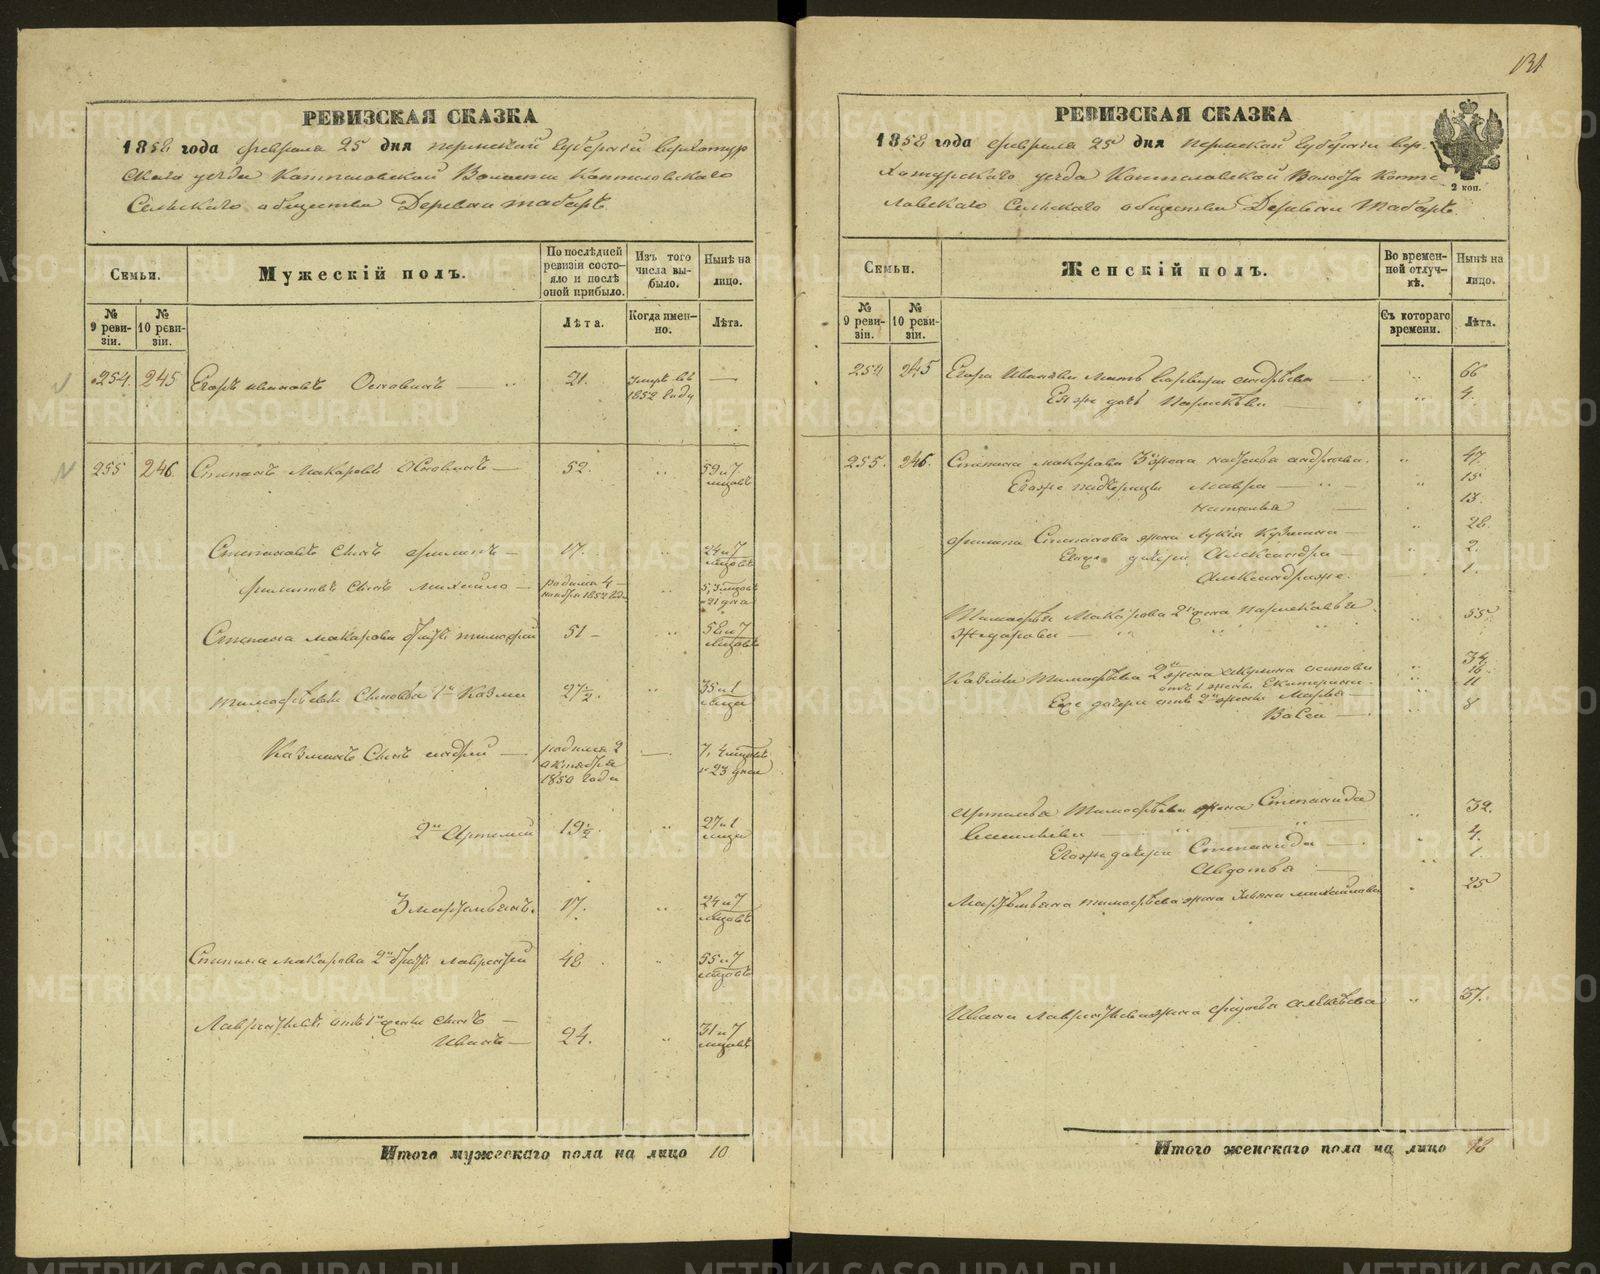 131
РЕВИЗСКАЯ СКАЗКА
1858 года февраля 25 дня пермской Губерніи верхотур
скаго уезда Коптеловской Волости Коптеловскаго
Сельскаго общества Деревни Табаръ
Семьи.
Мужескій полъ.
По послѣдней ревизіи состояло и послѣ оной прибыло.
Изъ того числа выбыло.
Нынѣ на лицо.
№ 9 ревизіи.
№ 10 ревизіи.
Лѣта.
Когда именно.
Лѣта.
254. 245 Егоръ ивановъ — 21. умре въ 1852 году —
255 246 Степанъ Макаровъ — 52. 59 и 7 мцовъ
Степановъ Сынъ филипъ — 17. 24 и 7 мцовъ
филиповъ Сынъ михайло — родился 4 1852 года 5, 3 мцовъ и 21 дня
Степана макарова братъ тимофей 51 — 58 и 7 мцовъ
тимофеевы Сыновья 1й Казма 27½. 35 и 1 мцъ
Казминъ Сынъ андрей — родился 2 октября 1850 года — 7, 4 мцовъ и 23 дня
2й Артемій 19½. 27 и 1 мцъ
3 мартемьянъ. 17. 24 и 7 мцовъ
Степана макарова 2й братъ лаврентей 48 55 и 7 мцовъ
Лаврентьевъ отъ 1й жены сынъ —
Иванъ — 24. 31 и 7 мцовъ
Итого мужескаго пола на лицо 10
РЕВИЗСКАЯ СКАЗКА
1858 года февраля 25 дня пермской Губерніи вер-
хотурскаго уезда Коптеловской Волости Копте
ловскаго Сельскаго общества Деревни Табаръ
2 коп.
Семьи.
Женскій полъ.
Во временной отлучкѣ.
Нынѣ на лицо.
№ 9 ревизіи.
№ 10 ревизіи.
Съ котораго времени.
Лѣта.
254 245 Егора Иванова мать варвара андрѣева — 66
Егоже дочь Парасковья 4.
255. 246. Степана макарова 3я жена андреева. 47
Егоже падчерицы Мавра — 15
наталья 13.
филипа Степанова жена Лукія Кузмина — 28.
Егоже дочери Александра — 2.
Александра же. 1.
Тимофея Макарова 2я жена парасковья 55.
Федорова —
Казмы Тимофѣева 2я жена Акулина осипова 34
отъ 1 жены Екатерина 16
Его дочери отъ 2й жены Марья — 11
Васса — 8
Артемья Тимофѣева жена Степанида 32.
Васильева —
Егоже дочери Степанида — 4.
Авдотья — 1.
Мартемьяна тимофѣева жена Ульяна михайлова 25
Ивана Лаврентьева жена федосья Алексѣева 37.
Итого женскаго пола на лицо 18
METRIKI.GASO-URAL.RU